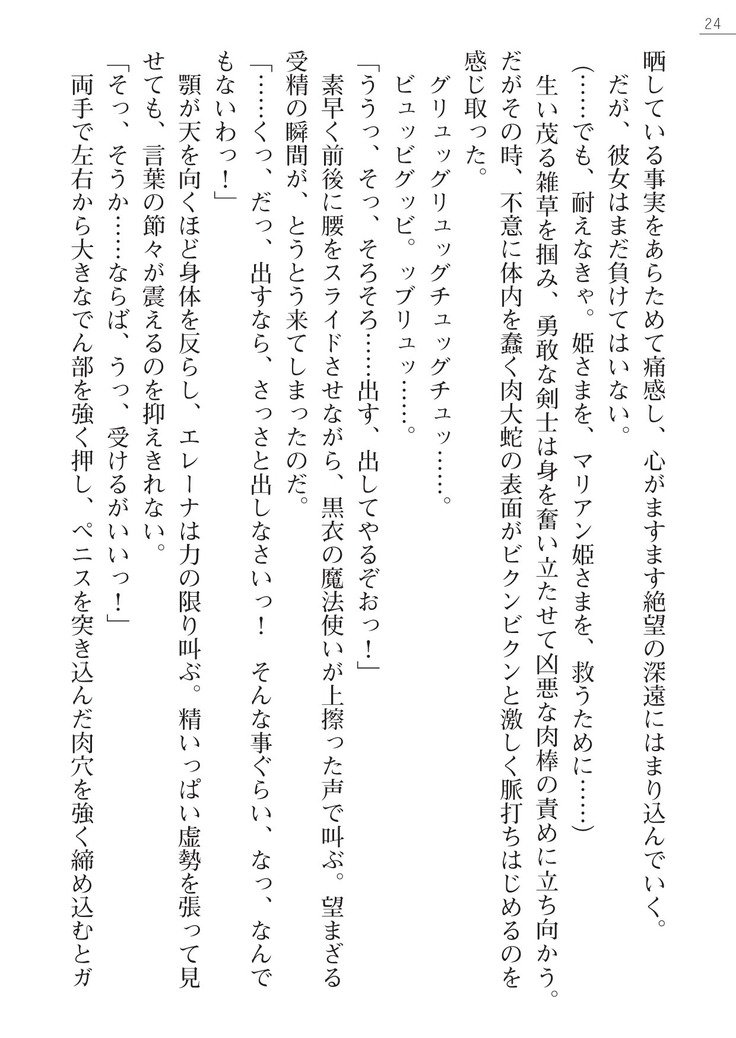 24
晒している事実をあらためて痛感し、心がますます絶望の深遠にはまり込んでいく。
だが、彼女はまだ負けてはいない。
(……でも、耐えなきゃ。姫さまを、マリアン姫さまを、救うために……)
生い茂る雑草を掴み、勇敢な剣士は身を奮い立たせて凶悪な肉棒の責めに立ち向かう。
だがその時、不意に体内を蠢く肉大蛇の表面がビクンビクンと激しく脈打ちはじめるのを
感じ取った。
グリュッグリュッグチュッグチュッ……。
ビュッビグッビ。ッブリュッ……。
「ううっ、そっ、そろそろ……出す、出してやるぞおっ！」
素早く前後に腰をスライドさせながら、黒衣の魔法使いが上擦った声で叫ぶ。望まざる
受精の瞬間が、とうとう来てしまったのだ。
「……くっ、だっ、出すなら、さっさと出しなさいっ！　そんな事ぐらい、なっ、なんで
もないわっ！」
顎が天を向くほど身体を反らし、エレーナは力の限り叫ぶ。精いっぱい虚勢を張って見
せても、言葉の節々が震えるのを抑えきれない。
「そっ、そうか……ならば、うっ、受けるがいいっ！」
両手で左右から大きなでん部を強く押し、ペニスを突き込んだ肉穴を強く締め込むとガ